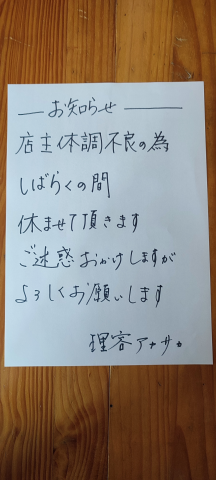 お知らせ
店主体調不良の為
しばらくの間
休ませて頂きます
ご迷惑おかけしますが
よろしくお願いします
理容アナサカ